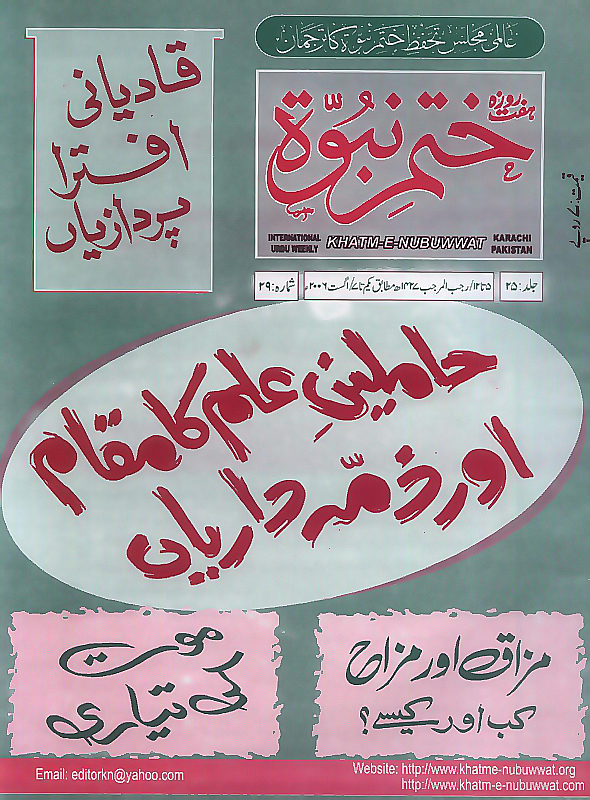 عالمی مجلس تحفظ ختم نبوۃ کا ترجمان
ہفت روزہ
ختم نبوۃ
INTERNATIONAL
URDU WEEKLY
KHATM-E-NUBUWWAT
KARACHI
PAKISTAN
قیمت: ۷ روپے
قادیانی
افترا
پردازیاں
جلد: ۲۵
۵ تا ۱۲/رجب المرجب ۱۴۲۷ھ مطابق یکم تا ۷/اگست ۲۰۰۶ء
شمارہ: ۲۹
حاملینِ علم کا مقام
اور ذمّہ داریاں
مزاق اور مزاح
کب اور کیسے؟
موت
کی تیاری
Email: editorkn@yahoo.com
Website: http://www.khatme-nubuwwat.org
http://www.khatm-e-nubuwwat.com